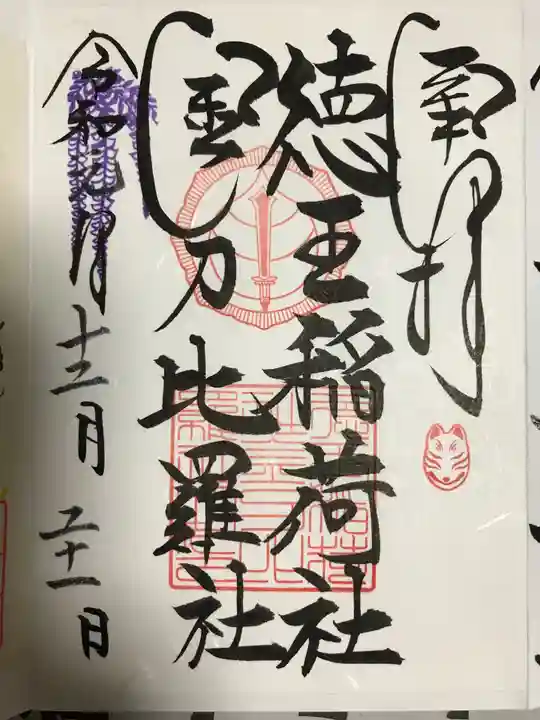 奉拝
徳王稲荷社
金刀比羅社
令和元年
十二月二十一日